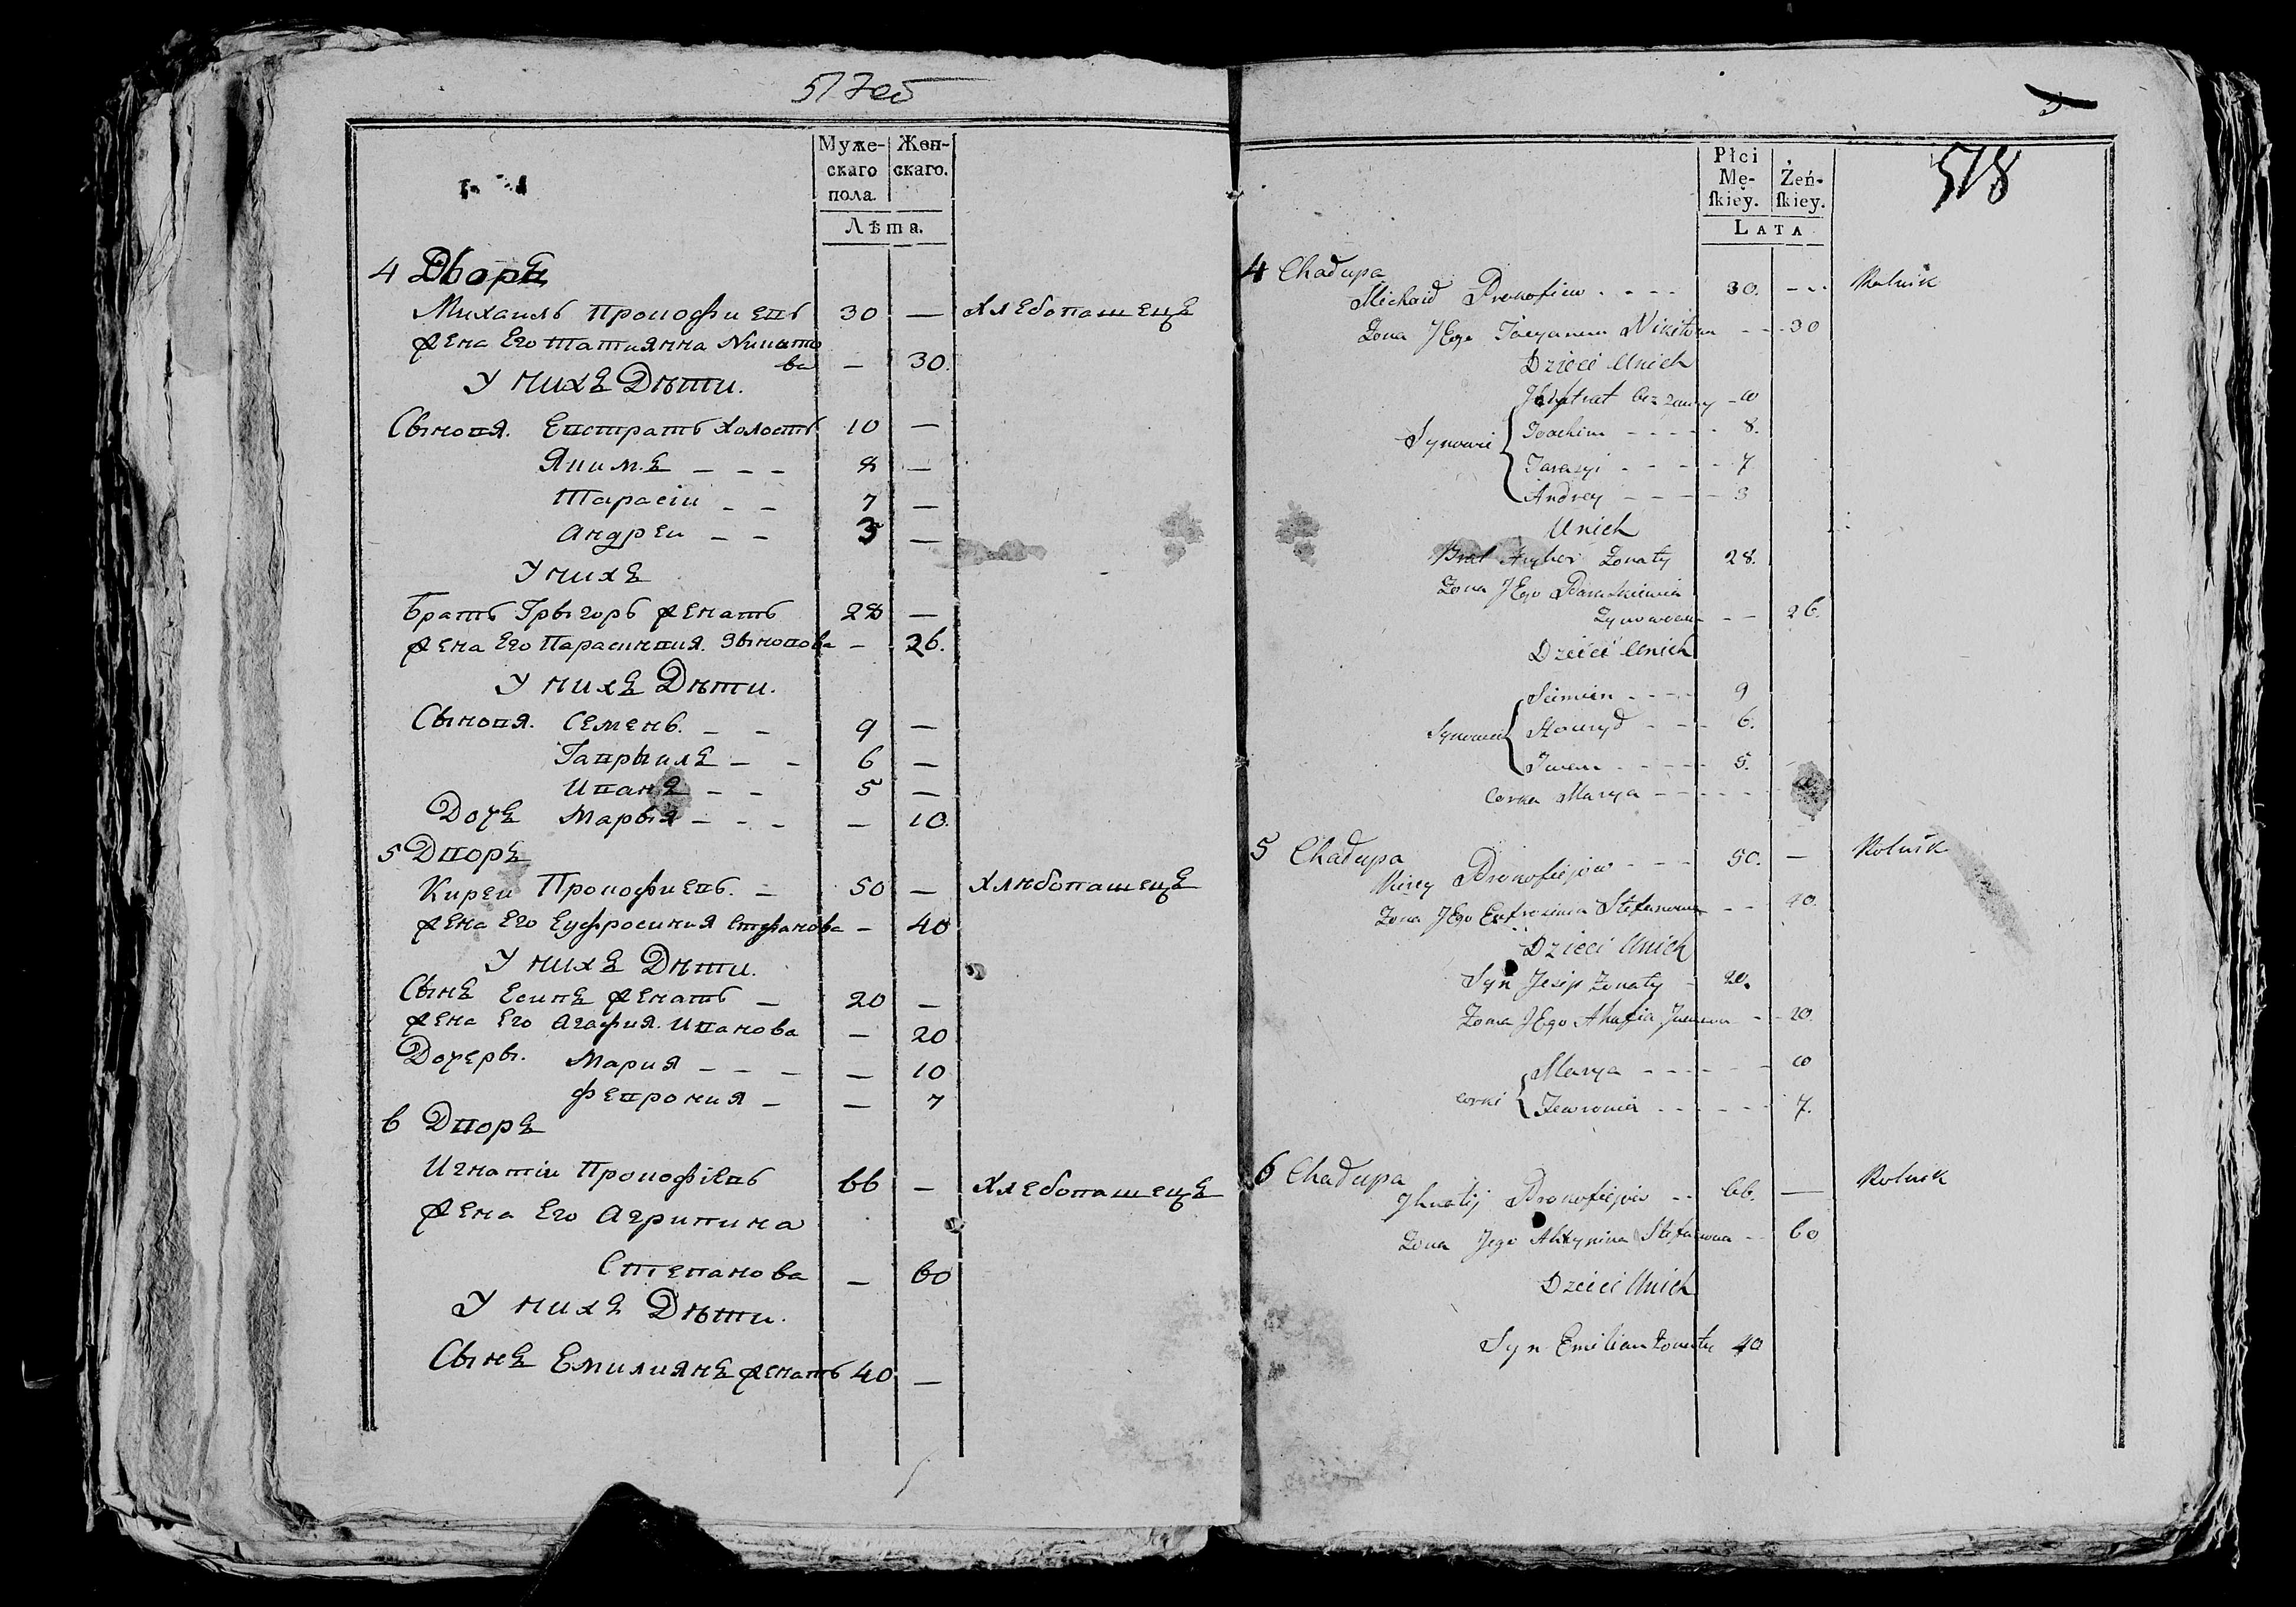 517об
Муже-
скаго
пола.
Жен-
скаго.
Лѣта.
4 Дворъ
Михаилъ Прокофиевъ 30 — Хлебопашецъ
Жена Его Татиянна Никито
ва — 30.
У нихъ Дѣти.
Сыновя. Евстратъ Холостъ 10 —
Якимъ — — — 8 —
Тарасіи — — 7 —
Андреи — — 3 —
У нихъ
Братъ Грыгоръ Женатъ 28 —
Жена Его Параскивия. Зыновова — 26.
У нихъ Дѣти.
Сыновя. Семенъ. — — 9 —
Гаврыилъ — — 6 —
Иванъ — — 5 —
Дочъ Марыя — — — — 10.
5 Дворъ
Киреи Прокофиевъ. — 50 — Хлѣбопашецъ
Жена Его Еуфросиния Стефанова — 40
У нихъ Дѣти.
Сынъ Есипъ Женатъ — 20 —
Жена Его Агафия. Иванова — 20
Дочеры. Мария — — — — 10
Феврония — — 7
6 Дворъ
Игнатіи Прокофіевъ 66 — Хлебопашецъ
Жена Его Агрипина
Степанова — 60
У нихъ Дѣти.
Сынъ Емилиянъ Женатъ 40 —
518
Płci
Mę-
ſkiey.
Żeń-
ſkiey.
LATA
4 Chałupa
Michaił Prokofiew 30. — Rolnik
Żona JEgo Taeyanna Nikitowa — 30
Dzieci Unich
bez żenny 10
Synowie Joachim 8.
Tarasyi 7
Andrey 3
Unich
Brat Żonaty 28.
Żona JEgo
26.
Dzieci Unich
Siemien 9
Synowie 6.
Iwan 5.
Corka Marya
5 Chałupa
Kirey Prokofiejow 50. — Rolnik
Żona JEgo Eufrosinia Stefanowa — 40.
Dzieci Unich
Syn Jesip Żonaty 20.
Żona JEgo Ahafia Iwanowa — 20.
Marya 10
Corki Jewronia 7.
6 Chałupa
Ihnatij Prokofiejow 66. — Rolnik
Żona Jego Ahrypina Stefanowa — 60
Dzieci Unich
Syn Emilian Żonaty 40